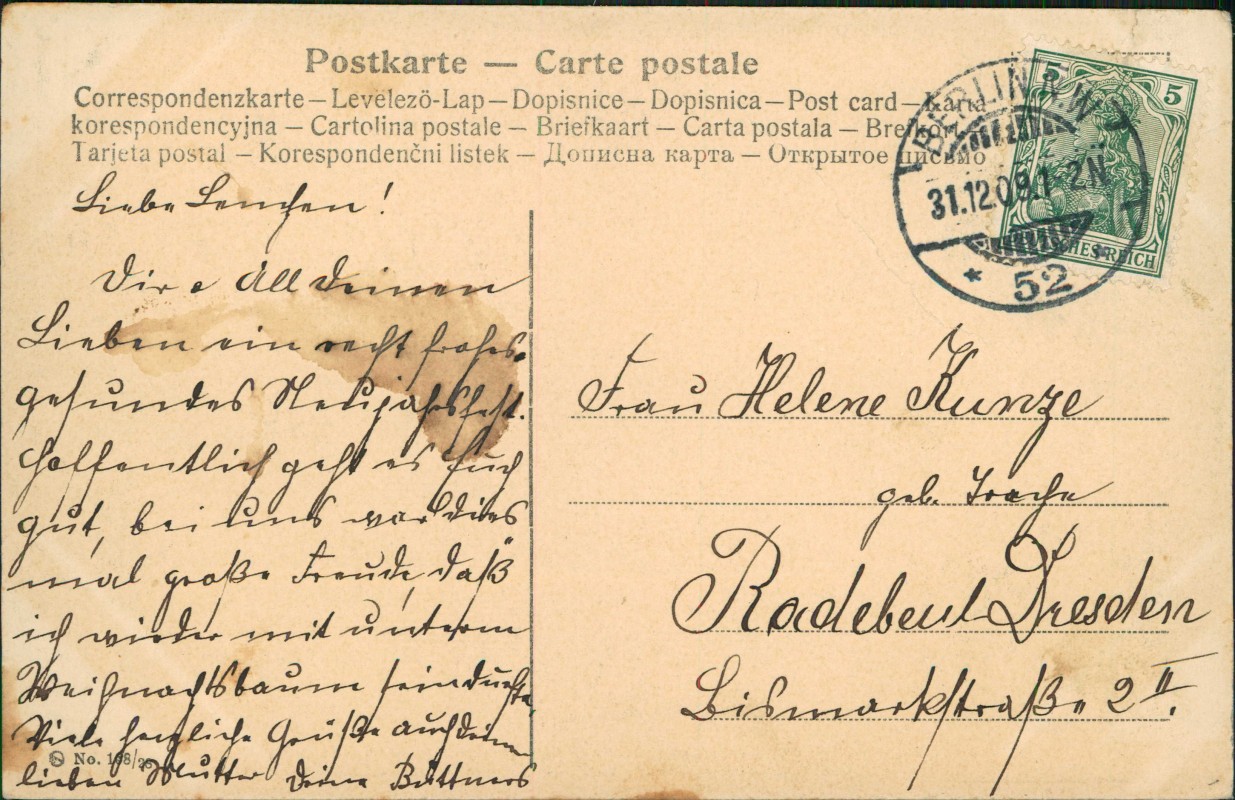 Postkarte — Carte postale
Correspondenzkarte — Levelező-Lap — Dopisnice — Dopisnica — Post card — Karta
korespondencyjna — Cartolina postale — Briefkaart — Carta postala — Brefkort
Tarjeta postal — Korespondenčni listek — Дописна карта — Открытое письмо
BERLIN N.W.
31.12.09.1-2N
* 52 *
5 5
DEUTSCHES REICH
Liebe Lenchen!
Dir e All Deinen
Lieben ein recht frohes
gesundes Neujahrsfest.
Hoffentlich geht es Euch
gut, bei uns war dies
mal große Freude, daß
ich wieder mit unterm
Weihnachtsbaum sein durfte.
Viele herzliche Grüße auch deiner
lieben Mutter Deine Büttners
No. 168/
Frau Helene Kunze
geb.
Radebeul Dresden
Bismarkstraße 2 II.